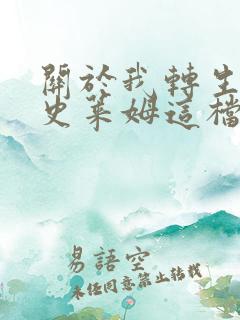 關於我轉生
史萊姆這檔
易語空
未經同意禁止轉載